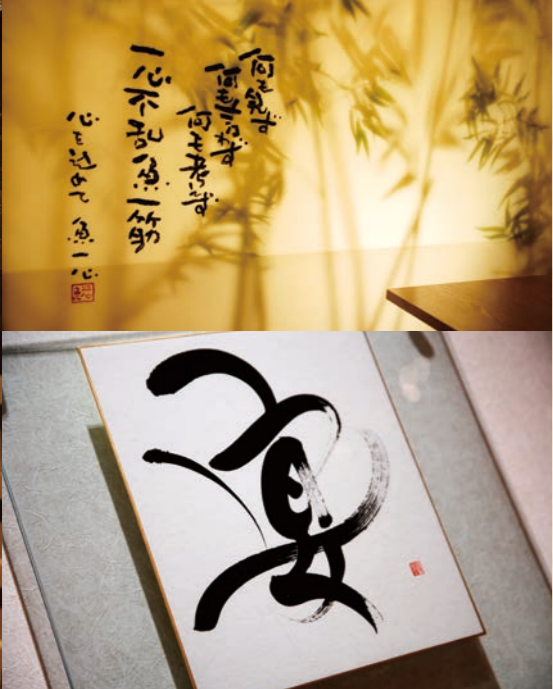 何も
何も言わず
何も考えず
一心不乱魚一筋
心を込めて 魚一心
宴